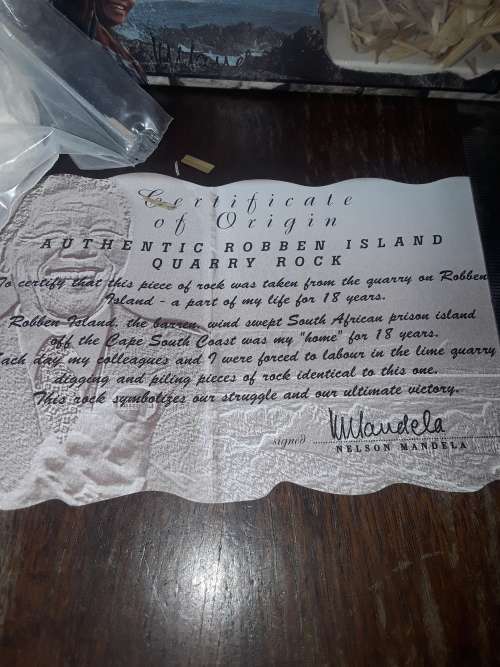 Certificate
of Origin
AUTHENTIC ROBBEN ISLAND
QUARRY ROCK
To certify that this piece of rock was taken from the quarry on Robben
Island - a part of my life for 18 years.
Robben Island, the barren, wind swept South African prison island
off the Cape South Coast was my "home" for 18 years.
Each day my colleagues and I were forced to labour in the lime quarry
digging and piling pieces of rock identical to this one.
This rock symbolizes our struggle and our ultimate victory.
signed NMandela
NELSON MANDELA